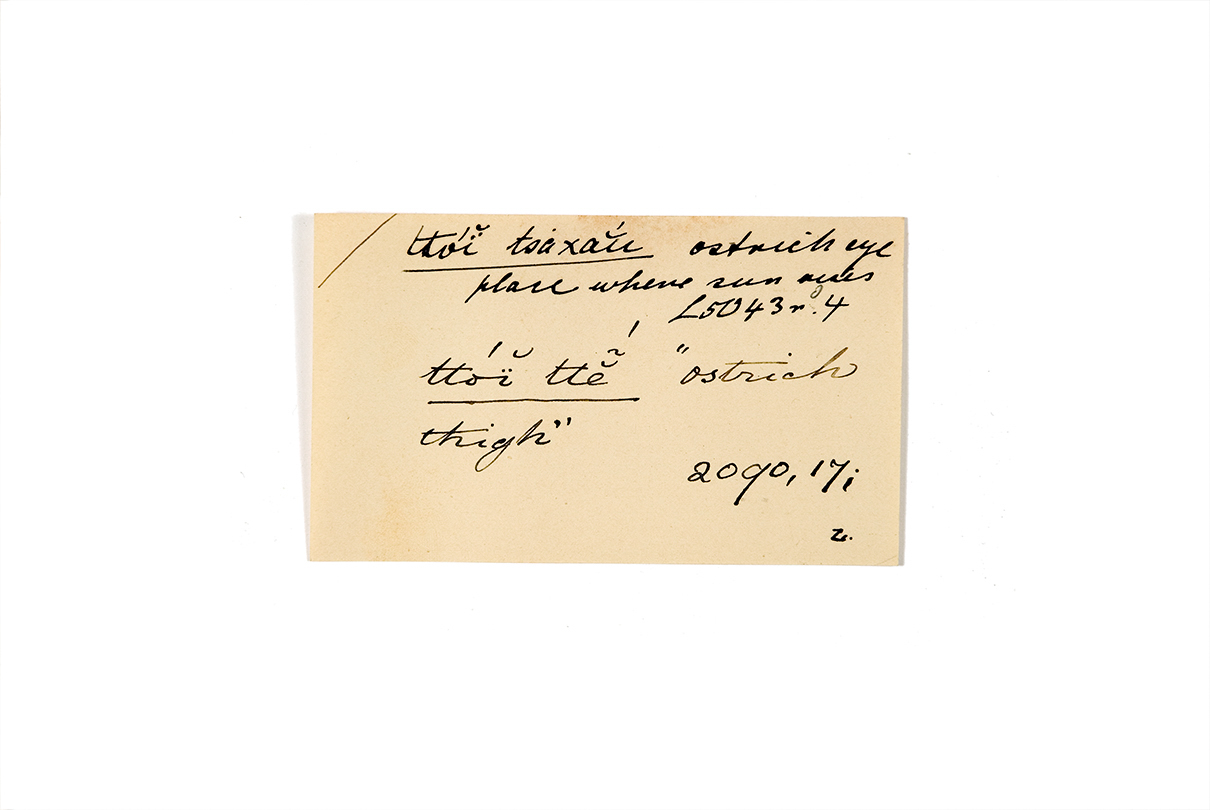 ttóï tsáxáŭ ostrich eye
place where sun rises
L5043 no. 4
ttóï ttẽ́ "ostrich
thigh"
2090, 17;
2.